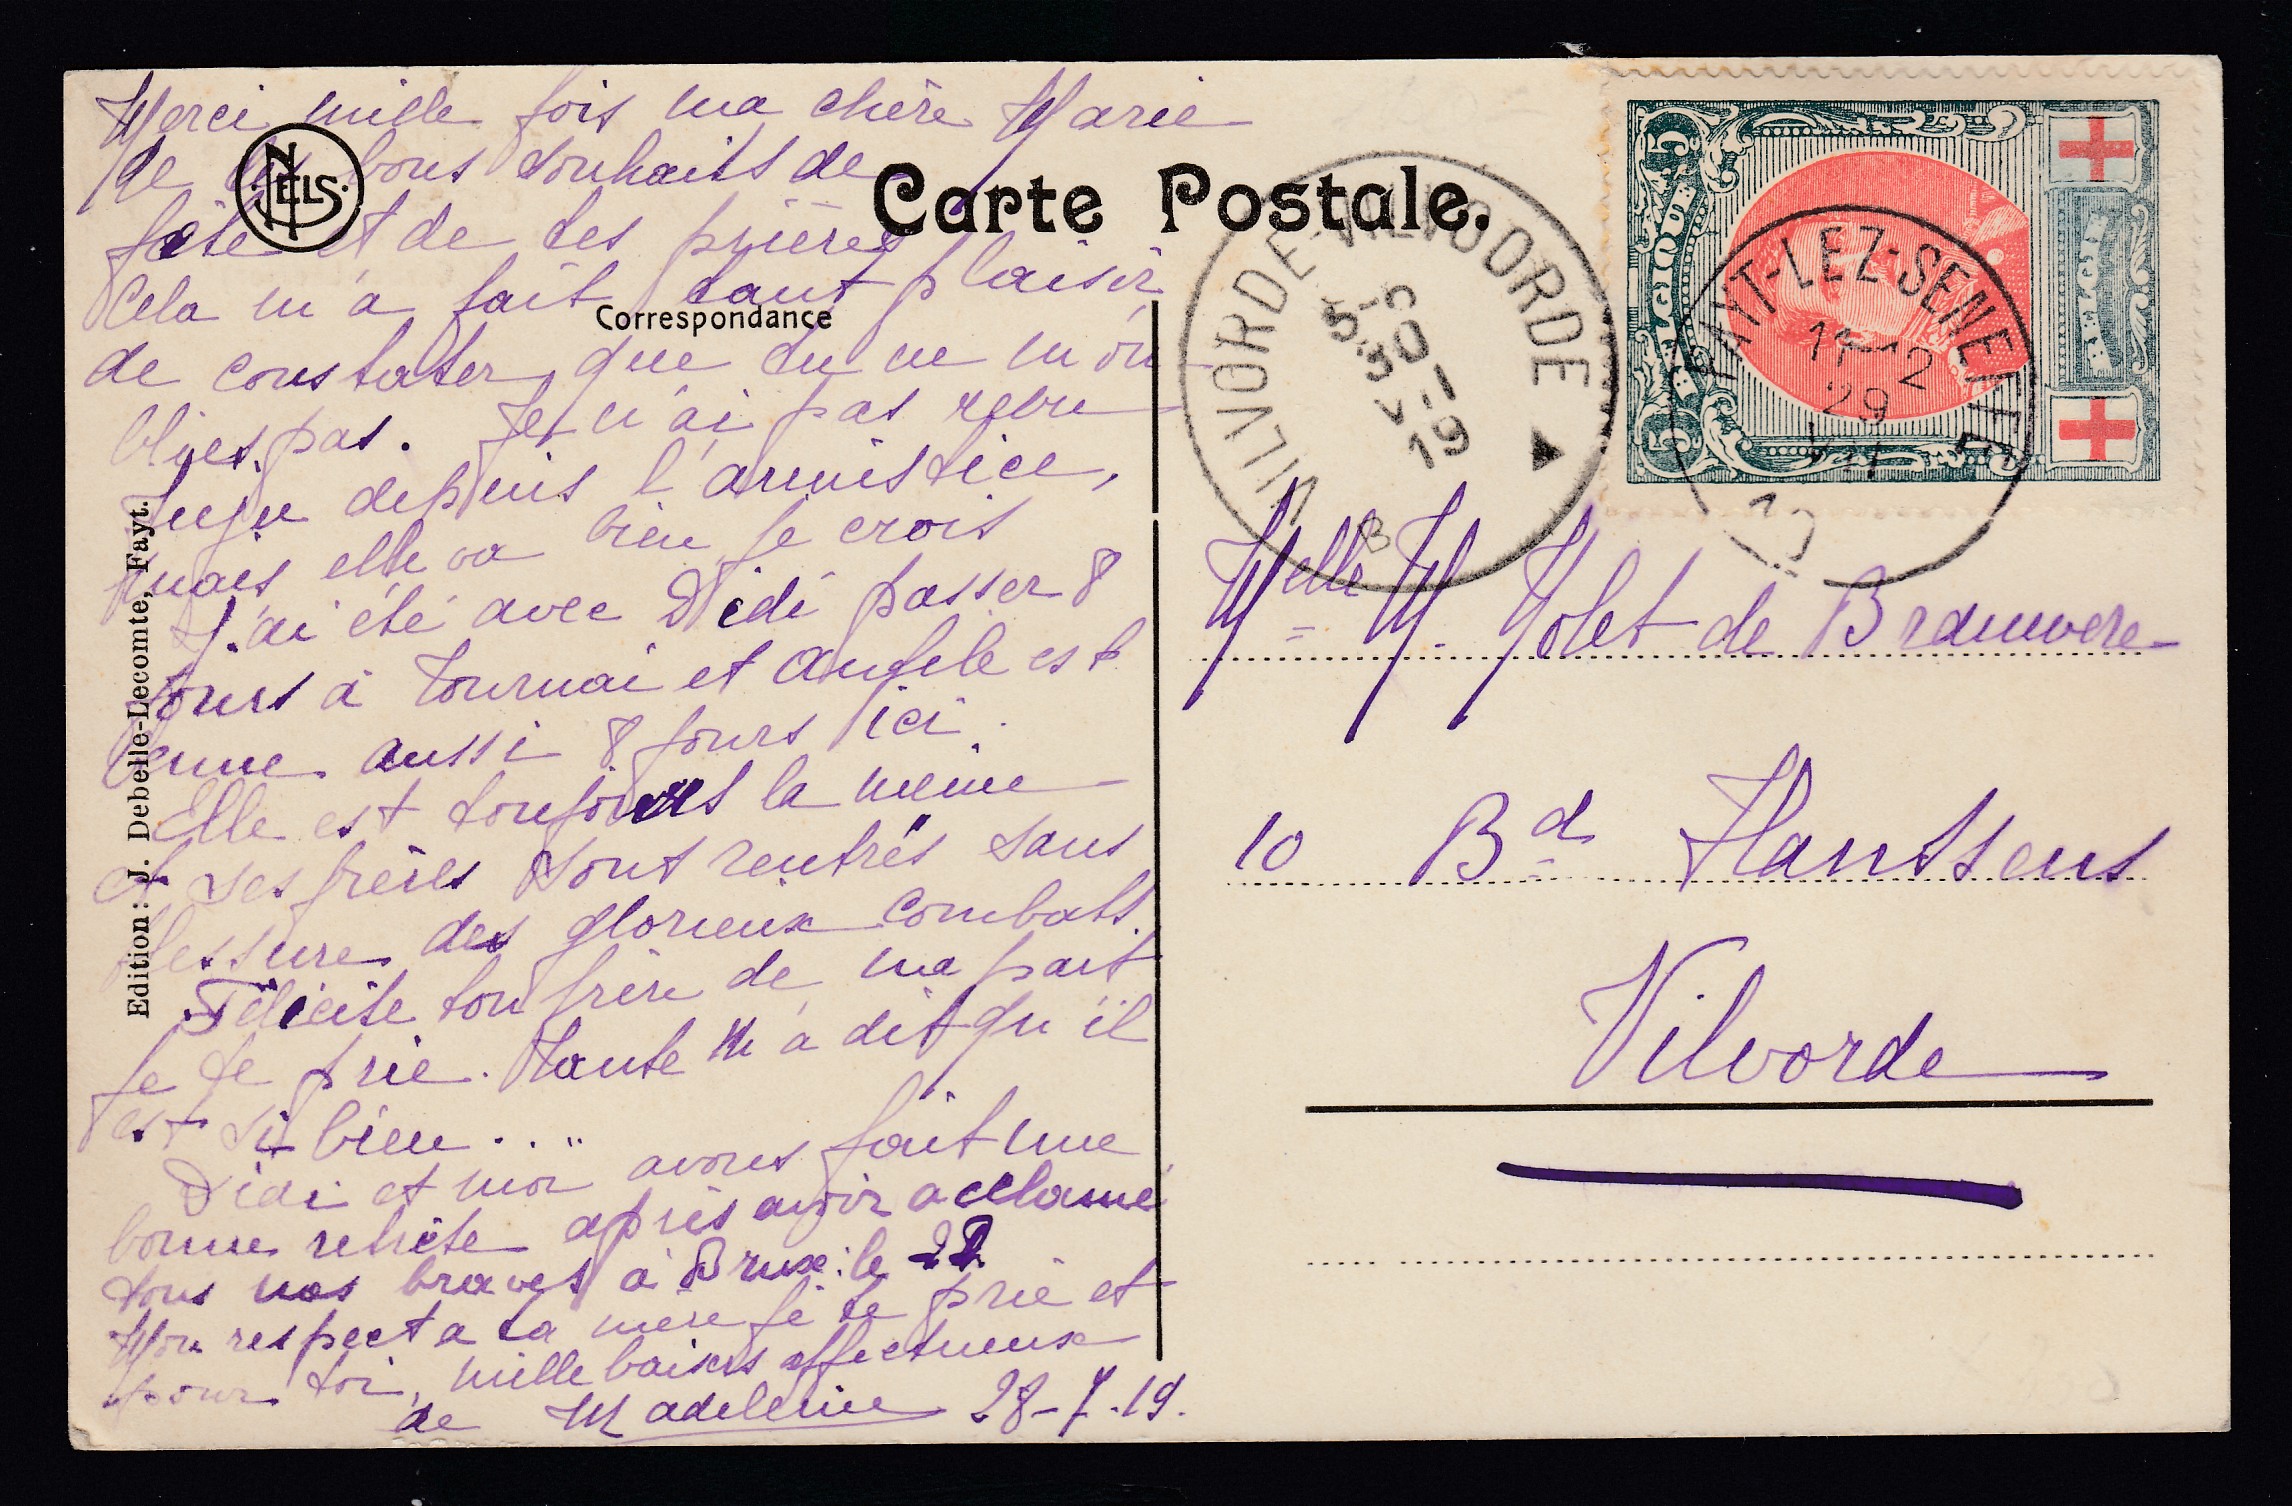 Merci mille fois ma chère Marie
de tes bons souhaits de
fête et de tes prières
Cela m'a fait tant plaisir
de constater que tu ne m'ou-
blies pas. Je n'ai pas revu
depuis l'armistice,
mais elle va bien je crois
J'ai été avec Didi passer 8
jours à Tournai et Angèle est
venue aussi 8 jours ici.
Elle est toujours la même
et ses frères sont rentrés sans
blessure des glorieux combats.
Félicite ton frère de ma part
je te prie. Tante M a dit qu'il
est si bien ....
Didi et moi avons fait une
bonne retraite après avoir acclamé
tous nos braves à Brux: le 22
Mon respect à ta mère je te prie et
pour toi, mille baisers affectueux
de Madeleine 28-7-19.
NELS
Edition: J. Debelle-Lecomte, Fayt.
Carte Postale.
Correspondance
VILVORDE-VILVOORDE
5-5
30
VII
19
B
5 5
BELGIQUE
BELGIË
FAYT-LEZ-SENEFFE
11-12
29
VII
19
Melle M. Nolet de Brauwere
10 Bd Hanssens
Vilvorde